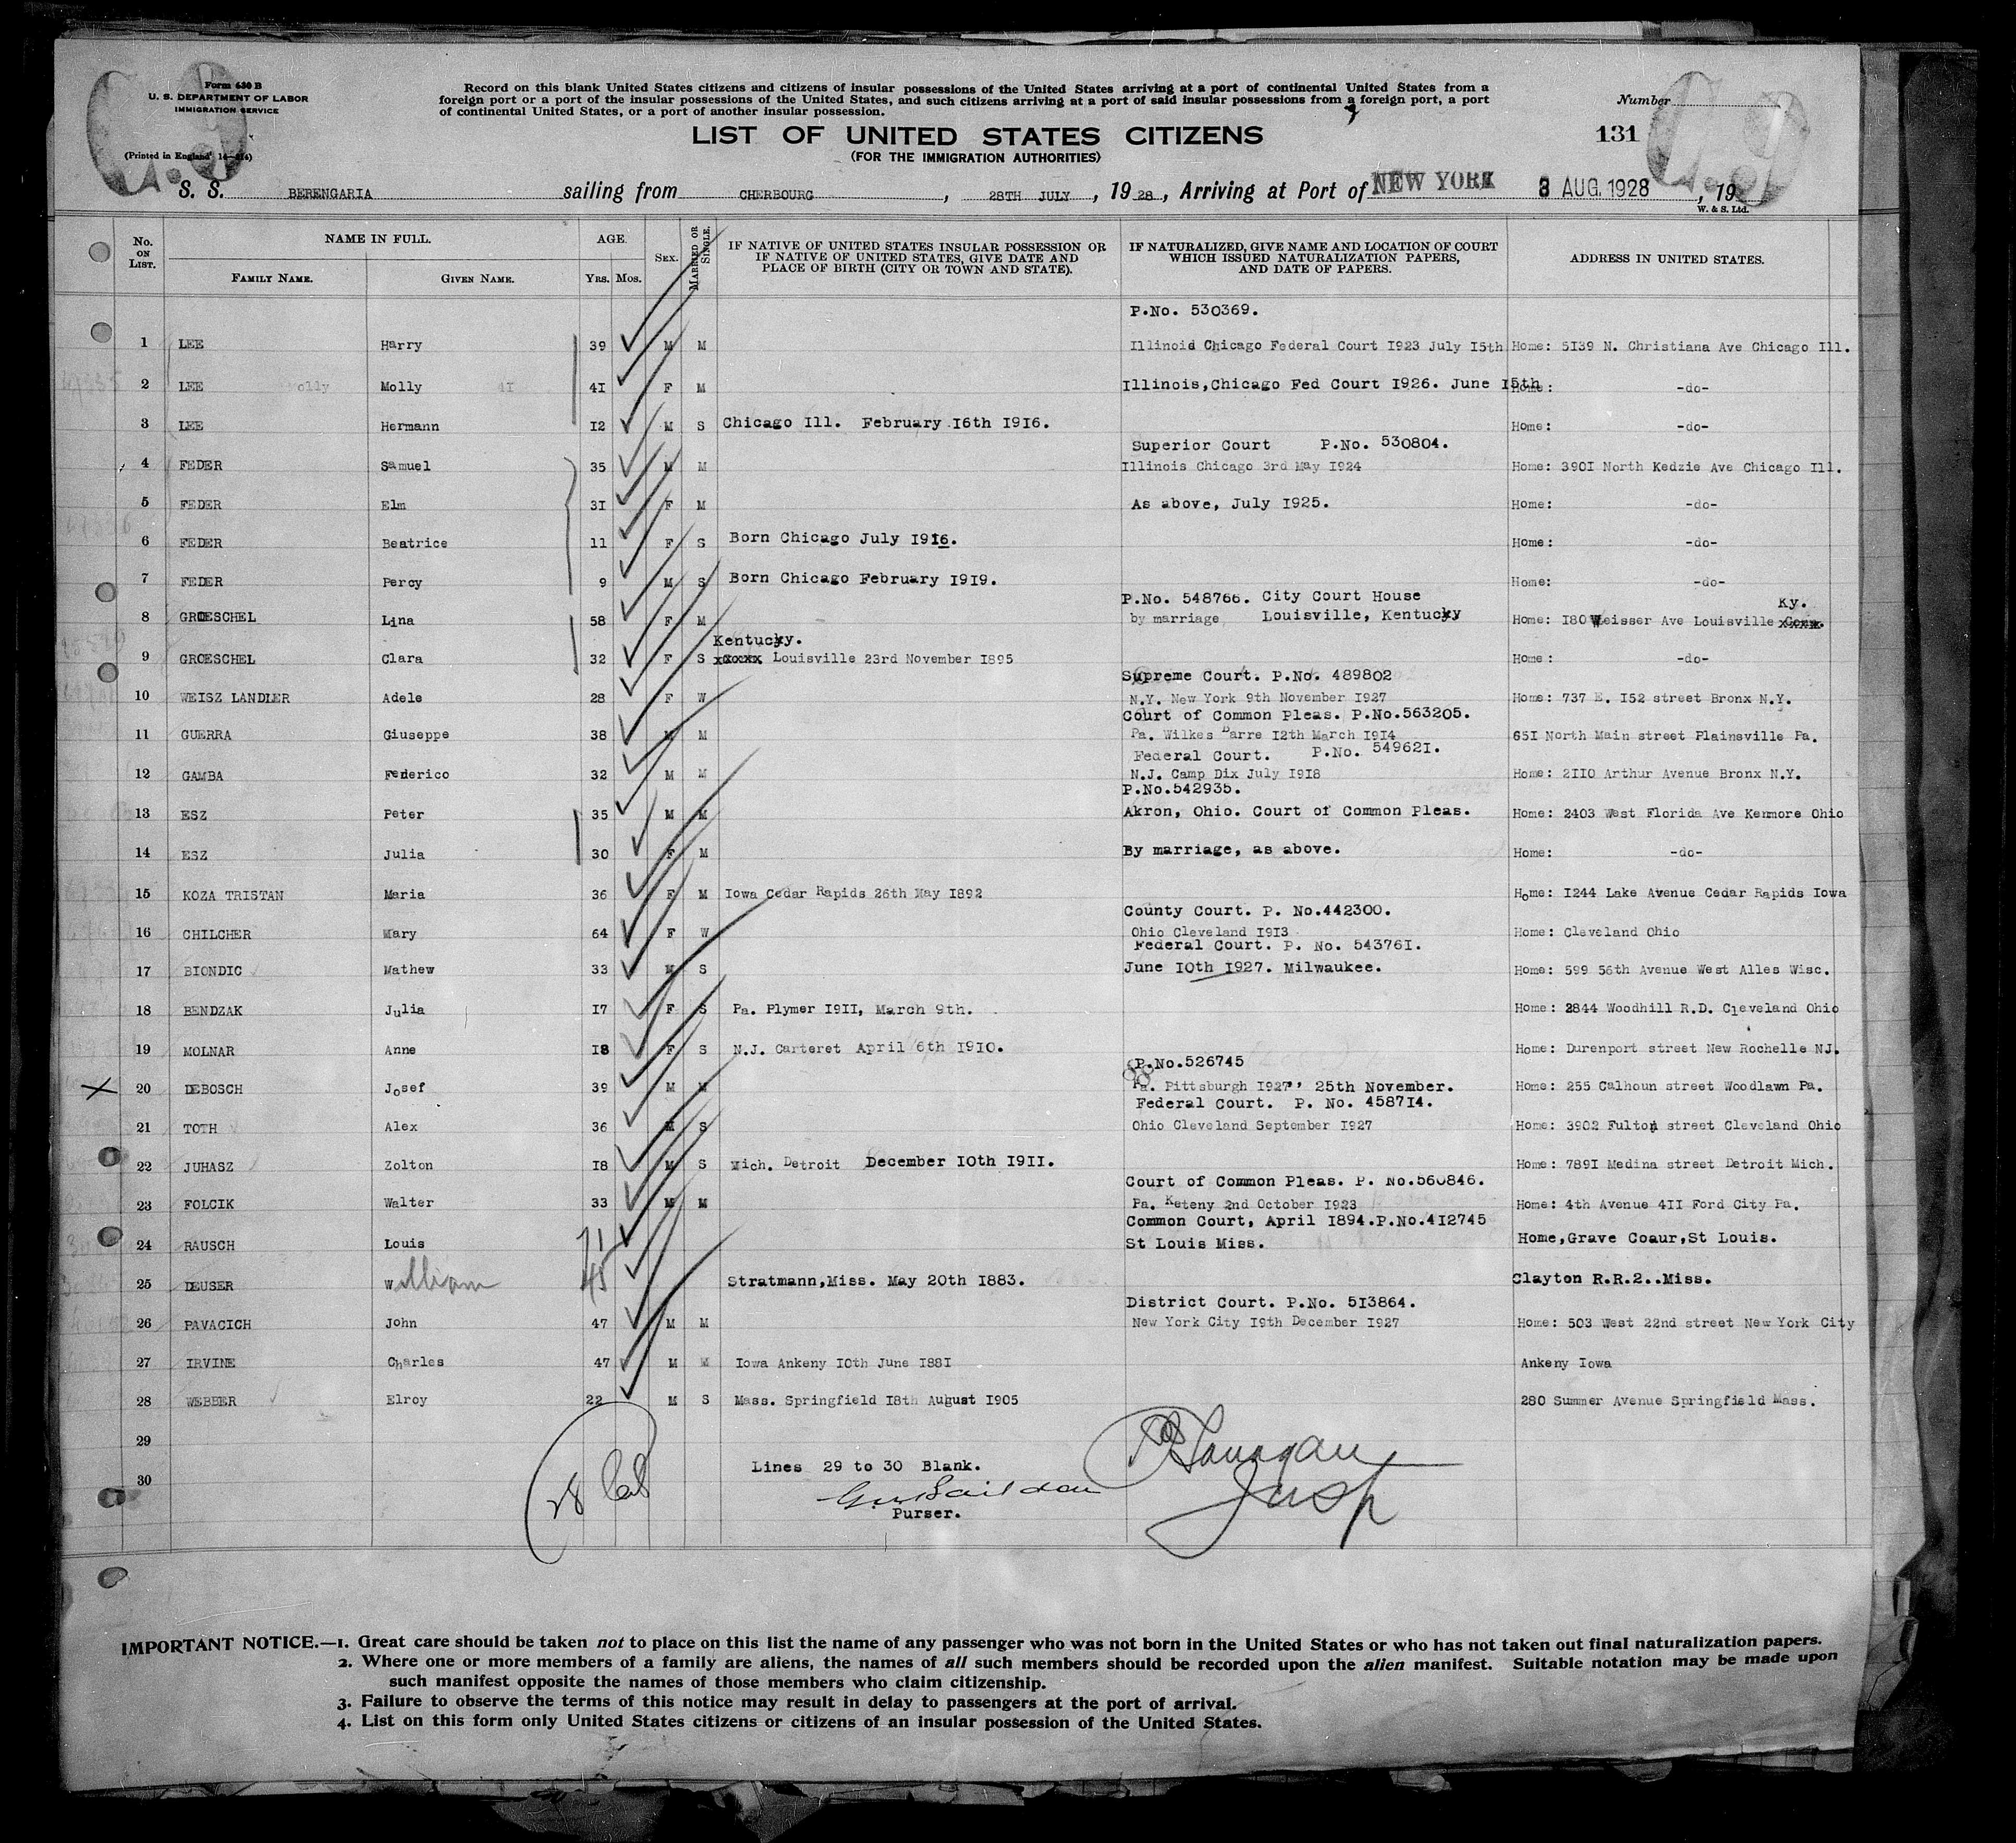 Form 630 B
U. S. DEPARTMENT OF LABOR
IMMIGRATION SERVICE
(Printed in England
Record on this blank United States citizens and citizens of insular possessions of the United States arriving at a port of continental United States from a
foreign port or a port of the insular possessions of the United States, and such citizens arriving at a port of said insular possessions from a foreign port, a port
of continental United States, or a port of another insular possession.
Number
LIST OF UNITED STATES CITIZENS
131
(FOR THE IMMIGRATION AUTHORITIES)
S. S. BERENGARIA sailing from CHERBOURG, 28TH JULY, 1928, Arriving at Port of NEW YORK 3 AUG. 1928, 19
W. & S. Ltd.
No. ON LIST. NAME IN FULL. FAMILY NAME. GIVEN NAME. AGE. YRS. MOS. SEX. MARRIED OR SINGLE. IF NATIVE OF UNITED STATES INSULAR POSSESSION OR IF NATIVE OF UNITED STATES, GIVE DATE AND PLACE OF BIRTH (CITY OR TOWN AND STATE). IF NATURALIZED, GIVE NAME AND LOCATION OF COURT WHICH ISSUED NATURALIZATION PAPERS, AND DATE OF PAPERS. ADDRESS IN UNITED STATES.
P.No. 530369.
1 LEE Harry 39 M M Illinoid Chicago Federal Court 1923 July 15th Home: 5139 N. Christiana Ave Chicago Ill.
2 LEE Molly 41 F M Illinois,Chicago Fed Court 1926. June 15th Home: -do-
3 LEE Hermann 12 M S Chicago Ill. February 16th 1916. Home: -do-
Superior Court P.No. 530804.
4 FEDER Samuel 35 M M Illinois Chicago 3rd May 1924 Home: 3901 North Kedzie Ave Chicago Ill.
5 FEDER Elm 31 F M As above, July 1925. Home: -do-
6 FEDER Beatrice 11 F S Born Chicago July 1916. Home: -do-
7 FEDER Percy 9 M S Born Chicago February 1919. Home: -do-
P.No. 548766. City Court House Ky.
8 GROESCHEL Lina 58 F M by marriage Louisville, Kentucky Home: 180 Weisser Ave Louisville
Kentucky.
9 GROESCHEL Clara 32 F S xxxxx Louisville 23rd November 1895 Home: -do-
Supreme Court. P.No. 489802
10 WEISZ LANDLER Adele 28 F W N.Y. New York 9th November 1927 Home: 737 E. 152 street Bronx N.Y.
Court of Common Pleas. P.No.563205.
11 GUERRA Giuseppe 38 M M Pa. Wilkes Barre 12th March 1914 651 North Main street Plainsville Pa.
Federal Court. P.No. 549621.
12 GAMBA Federico 32 M M N.J. Camp Dix July 1918 Home: 2110 Arthur Avenue Bronx N.Y.
P.No.542935.
13 ESZ Peter 35 M M Akron, Ohio. Court of Common Pleas. Home: 2403 West Florida Ave Kenmore Ohio
14 ESZ Julia 30 F M By marriage, as above. Home: -do-
15 KOZA TRISTAN Maria 36 F M Iowa Cedar Rapids 26th May 1892 Home: 1244 Lake Avenue Cedar Rapids Iowa
County Court. P. No.442300.
16 CHILCHER Mary 64 F W Ohio Cleveland 1913 Home: Cleveland Ohio
Federal Court. P. No. 543761.
17 BIONDIC Mathew 33 M S June 10th 1927. Milwaukee. Home: 599 56th Avenue West Alles Wisc.
18 BENDZAK Julia 17 F S Pa. Plymer 1911, March 9th. Home: 2844 Woodhill R.D. Cleveland Ohio
19 MOLNAR Anne 18 F S N.J. Carteret April 6th 1910. Home: Durenport street New Rochelle NJ.
P.No.526745
20 DEBOSCH Josef 39 M M Pa. Pittsburgh 1927, 25th November. Home: 255 Calhoun street Woodlawn Pa.
Federal Court. P. No. 458714.
21 TOTH Alex 36 M S Ohio Cleveland September 1927 Home: 3902 Fulton street Cleveland Ohio
22 JUHASZ Zolton 18 M S Mich. Detroit December 10th 1911. Home: 7891 Medina street Detroit Mich.
Court of Common Pleas. P. No.560846.
23 FOLCIK Walter 33 M M Pa. Keteny 2nd October 1923 Home: 4th Avenue 411 Ford City Pa.
Common Court, April 1894.P.No.412745
24 RAUSCH Louis 71 St Louis Miss. Home,Grave Coaur,St Louis.
25 DEUSER William 45 Stratmann,Miss. May 20th 1883. Clayton R.R.2..Miss.
District Court. P.No. 513864.
26 PAVACICH John 47 M M New York City 19th December 1927 Home: 503 West 22nd street New York City
27 IRVINE Charles 47 M M Iowa Ankeny 10th June 1881 Ankeny Iowa
28 WEBBER Elroy 22 M S Mass. Springfield 18th August 1905 280 Summer Avenue Springfield Mass.
29
30
Lines 29 to 30 Blank.
Purser.
IMPORTANT NOTICE.—1. Great care should be taken not to place on this list the name of any passenger who was not born in the United States or who has not taken out final naturalization papers.
2. Where one or more members of a family are aliens, the names of all such members should be recorded upon the alien manifest. Suitable notation may be made upon
such manifest opposite the names of those members who claim citizenship.
3. Failure to observe the terms of this notice may result in delay to passengers at the port of arrival.
4. List on this form only United States citizens or citizens of an insular possession of the United States.